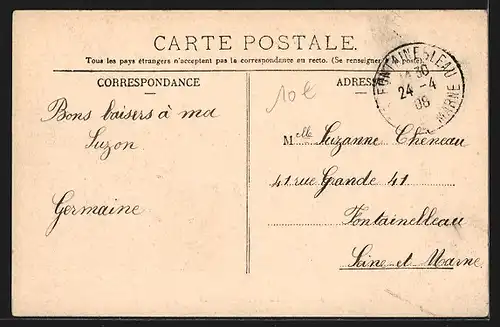 CARTE POSTALE.
Tous les pays étrangers n'acceptent pas la correspondance au recto. (Se renseigner à la poste).
CORRESPONDANCE
ADRESSE
10€
FONTAINEBLEAU
30
24 -4
06
MARNE
Bons baisers à ma
Suzon.
Germaine
Melle Suzanne Cheneau
41 rue Grande 41
Fontainelleau
Seine et Marne.